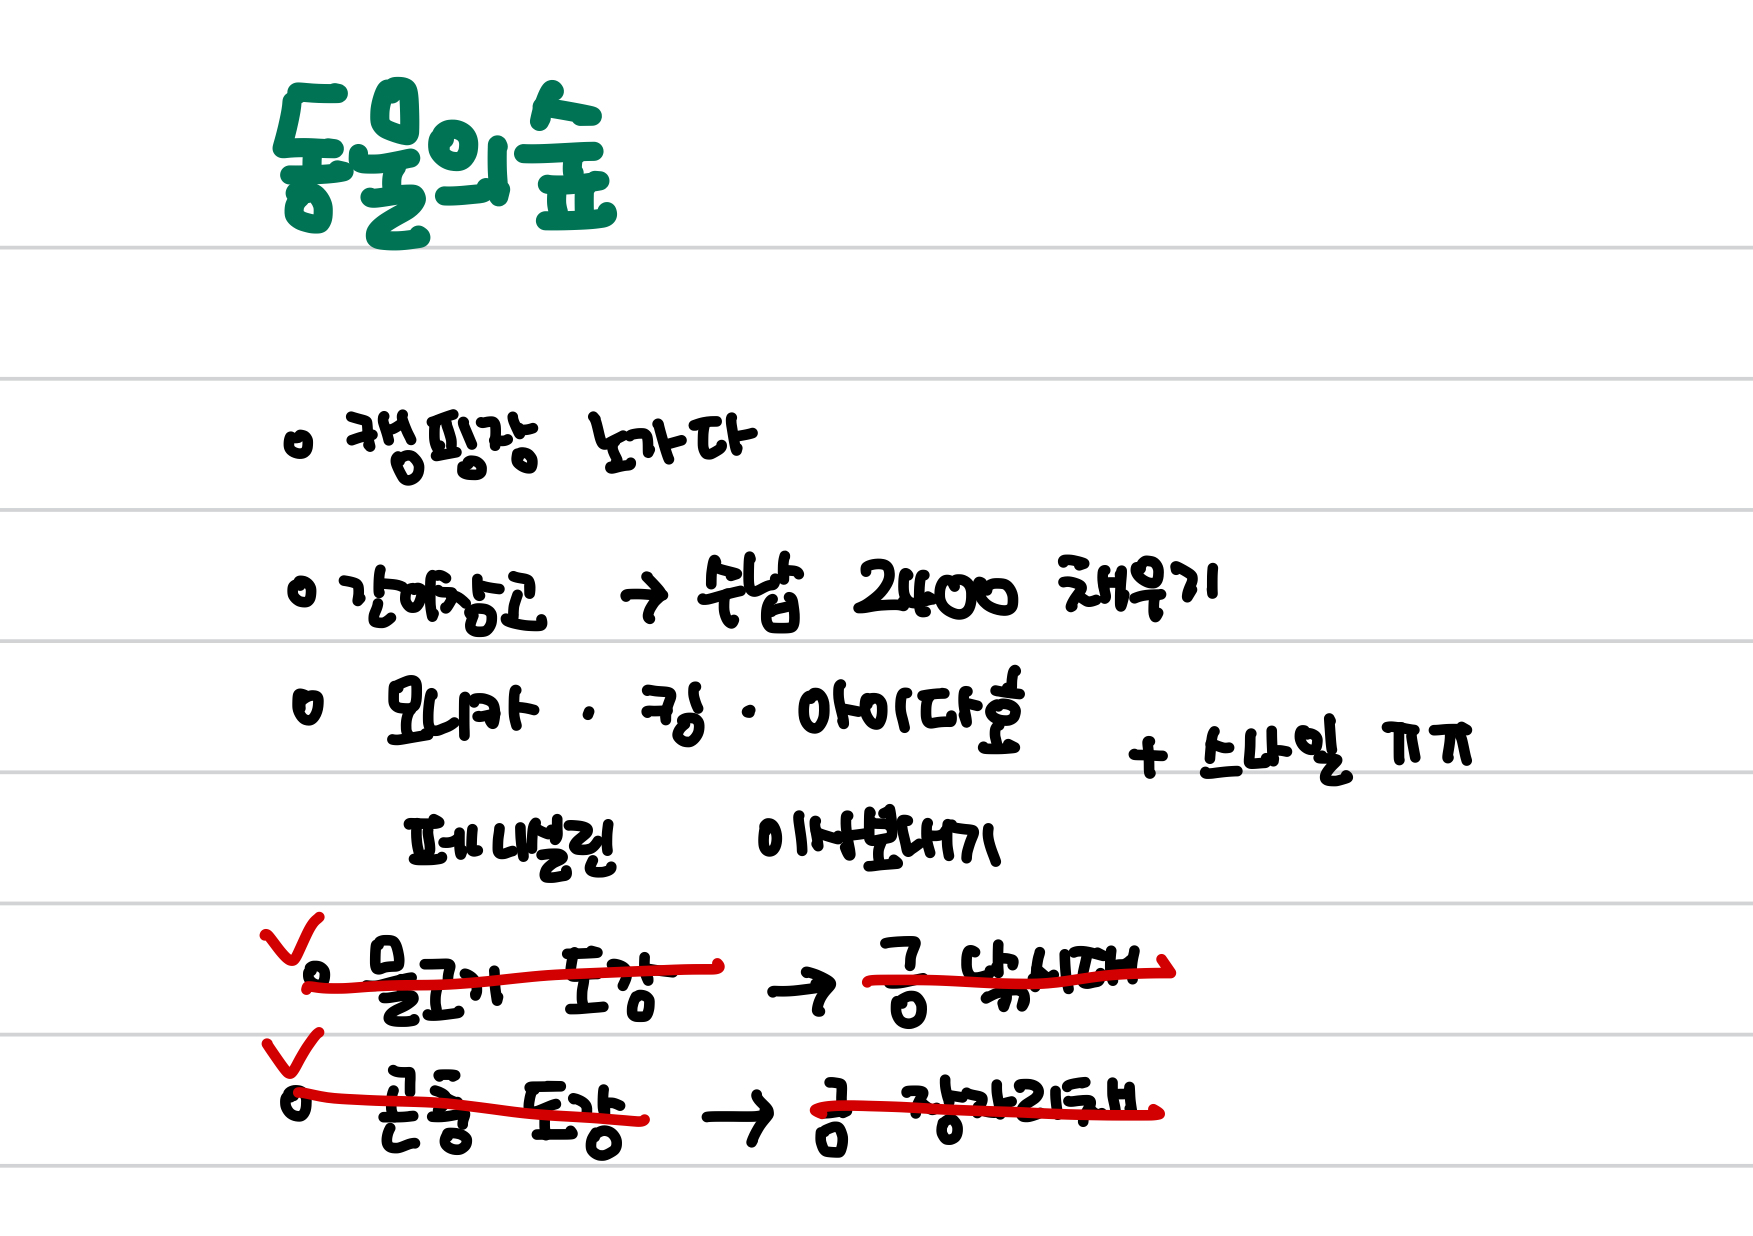 동물의숲
o 캠핑장 노가다
o 간이창고 → 수납 2400 채우기
o 모니카 · 킹 · 아이다호
+ 스나일 ㅠㅠ
페니실린 이사보내기
✓ o 물고기 도감 → 금 낚싯대
✓ o 곤충 도감 → 금 잠자리채